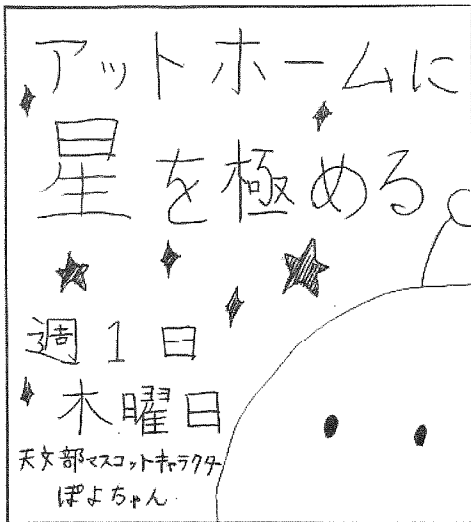 アットホームに
星を極める。
週1日
木曜日
天文部マスコットキャラクター
ぽよちゃん